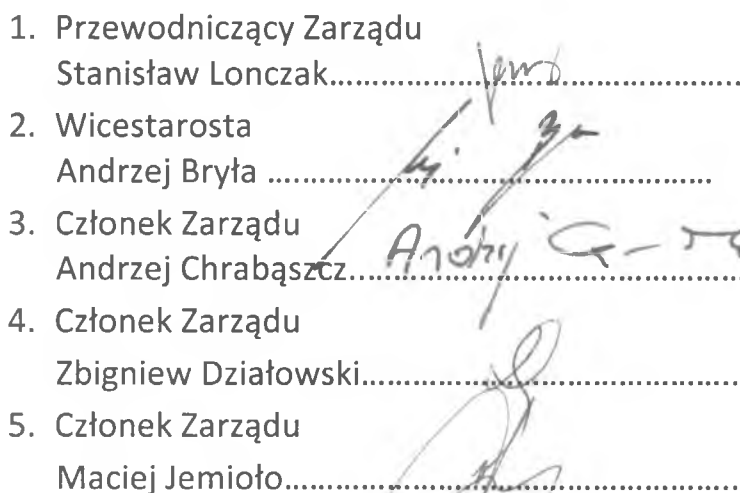 1. Przewodniczący Zarządu
Stanisław Lonczak..................................................
2. Wicestarosta
Andrzej Bryła ..................................................
3. Członek Zarządu
Andrzej Chrabąszcz..................................................
Andrzej
4. Członek Zarządu
Zbigniew Działowski..................................................
5. Członek Zarządu
Maciej Jemioło..................................................